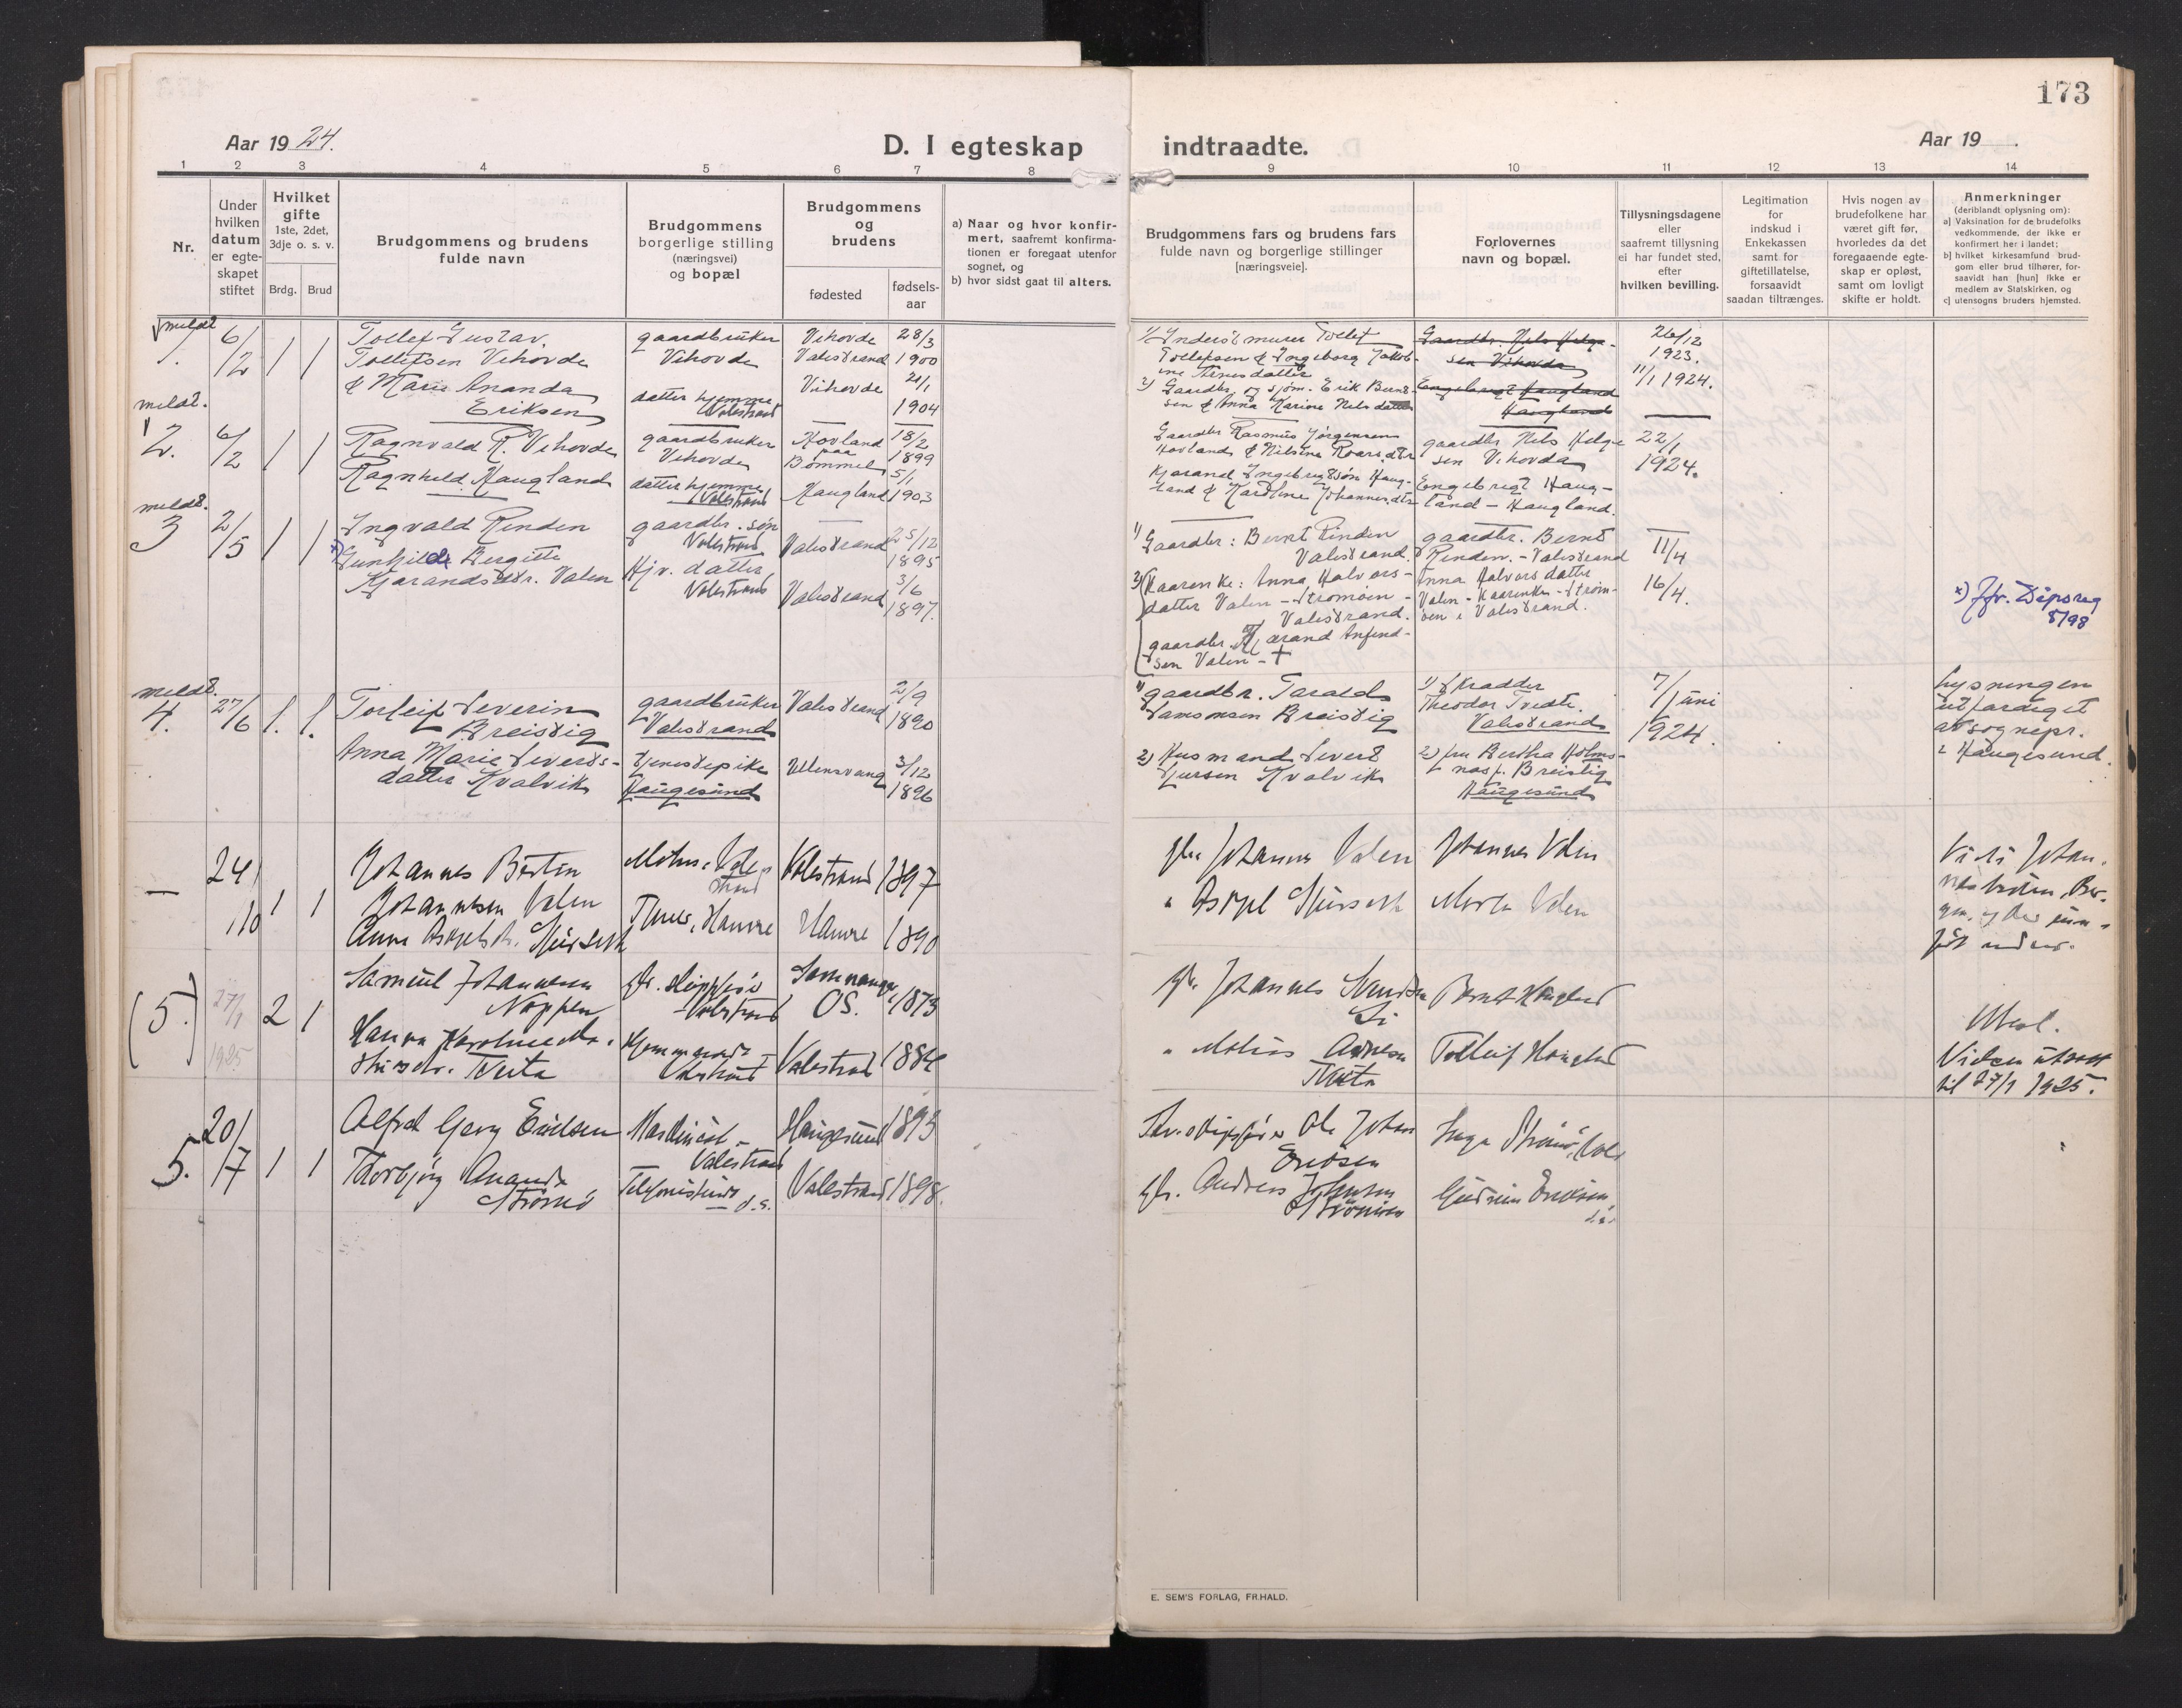 173
Aar 1924.
D. I egteskap
indtraadte.
Aar 19 .
1 2 3 4 5 6 7 8 9 10 11 12 13 14
Nr.
Under
hvilken
datum
er egte-
skapet
stiftet
Hvilket
gifte
1ste, 2det,
3dje o. s. v.
Brdg. Brud
Brudgommens og brudens
fulde navn
Brudgommens
borgerlige stilling
(næringsvei)
og bopæl
Brudgommens
og
brudens
fødested
fødsels-
aar
a) Naar og hvor konfir-
mert, saafremt konfirma-
tionen er foregaat utenfor
sognet, og
b) hvor sidst gaat til alters.
Brudgommens fars og brudens fars
fulde navn og borgerlige stillinger
[næringsveie].
Forlovernes
navn og bopæl.
Tillysningsdagene
eller
saafremt tillysning
ei har fundet sted,
efter
hvilken bevilling.
Legitimation
for
indskud i
Enkekassen
samt for
giftetillatelse,
forsaavidt
saadan tiltrænges.
Hvis nogen av
brudefolkene har
været gift før,
hvorledes da det
foregaaende egte-
skap er opløst,
samt om lovligt
skifte er holdt.
Anmerkninger
(deriblandt oplysning om):
a] Vaksination for de brudefolks
vedkommende, der ikke er
konfirmert her i landet;
b] hvilket kirkesamfund brud-
gom eller brud tilhører, for-
saavidt han [hun] ikke er
medlem av Statskirken, og
c] utensogns bruders hjemsted.
meldt
1. 6/2 1 1
Tollef Gustav.
Tollefsen Vihovde
& Marie Ananda
Eriksen
gaardbruker
Vihovde
datter hjemme
Valestrand
Vihovde
Valestrand
Vihovde
28/3
1900
21/1
1904
1) Inderst murer Tollef
Tollefsen & Ingeborg Jakob-
ine Arnesdatter
2) Gaardbr. og sjøm. Erik Bernt-
sen & Anna Karine Nilsdatter
Gaardbr. Nils Helge-
sen Vihovda
Engebregt Haugland
Haugland
26/12
1923.
11/1 1924.
meldt.
2. 6/2 1 1
Ragnvald R. Vihovde
Ragnhild Haugland
gaardbruker
Vihovde
datter hjemme
Valestrand
Hovland
paa
Bømmel
Haugland
18/2
1899
5/1
1903
Gaardbr Rasmus Jørgensen
Hovland & Nilsine Roarsdtr
Kjarand Ingebregtsøn Haug-
land & Karoline Johannesdtr
gaardbr. Nils Helge
sen Vihovda
Engebregt Haug-
land - Haugland.
22/1
1924.
meldt.
3 2/5 1 1
Ingvald Rinden
x) Gunhilde Bergitte
Kjarandsdtr. Valen
gaardbr. søn
Valestrand
Hjv. datter
Valestrand
Valestrand
Valestrand
25/12
1895
3/6
1897.
1) Gaardbr: Bernt Rinden
Valestrand.
2) Kaarenke: Anna Halvors-
datter Valen - Strømøen -
Valestrand.
gaardbr. Kjarand Anfind-
sen Valen - †
gaardbr. Bernt
Rinden. - Valestrand
Anna Halvorsdatter
Valen - Kaarenke - Strøm-
øen i Valestrand.
11/4
16/4.
x) Jfr. Dåpsreg
5/98
meldt.
4. 27/6 1. 1.
Torleif Severin
Breistig
Anna Marie Siverts-
datter Kvalvik
gaardbruker
Valestrand
Tjenestepike
Haugesund
Valestrand
Ullensvang
2/9
1890
3/12
1896
1) gaardbr. Tarald
Samsonsen Breistig
2) Husmand Sivert
Sjursen Kvalvik
1) Skrædder
Theodor Tvedte.
Valestrand
2) fru Bertha Holms-
nas f. Breistig
Haugesund
7/juni
1924.
Lysningen
utfærdiget
av sognepr.
i Haugesund.
— 24/10 1 1
Johannes Bertin
Johannesen Valen
Anna Askjelsdtr.
Vale-
strand
Hamre
Valestrand
Hamre
1897
1890
gbr Johannes Valen
" Askjel
Johannes Valen
Valen
Vi i Johan-
neskirken, Ber-
gen,
(5.) 27/1 1925 2 1
Samuel Johannesen
Noppen
Hanna Karoline Ma-
thisdtr. Tveita
gbr. skipper
Valestrand
Hjemmeværende
Valestrand
Samnanger
Os.
Valestrand
1873
1884
gbr Johannes
Li
" Mathias Andersen
Tveita
Bernt Haugland
Tolleif Haugland
Vielsen utsatt
til 27/1 1925.
5. 20/7 1 1
Alfred Georg Eriksen
Thorbjørg Ananda
Strømø
Maskinist -
Valestrand
Telefonistinde
d. s.
Haugesund
Valestrand
1893
1898.
Ole Johan
Eriksen
gbr. Andreas Johnsen
Strømøen
Inga Strømø, Vale
Gudrun Eriksen,
E. SEM'S FORLAG, FR.HALD.